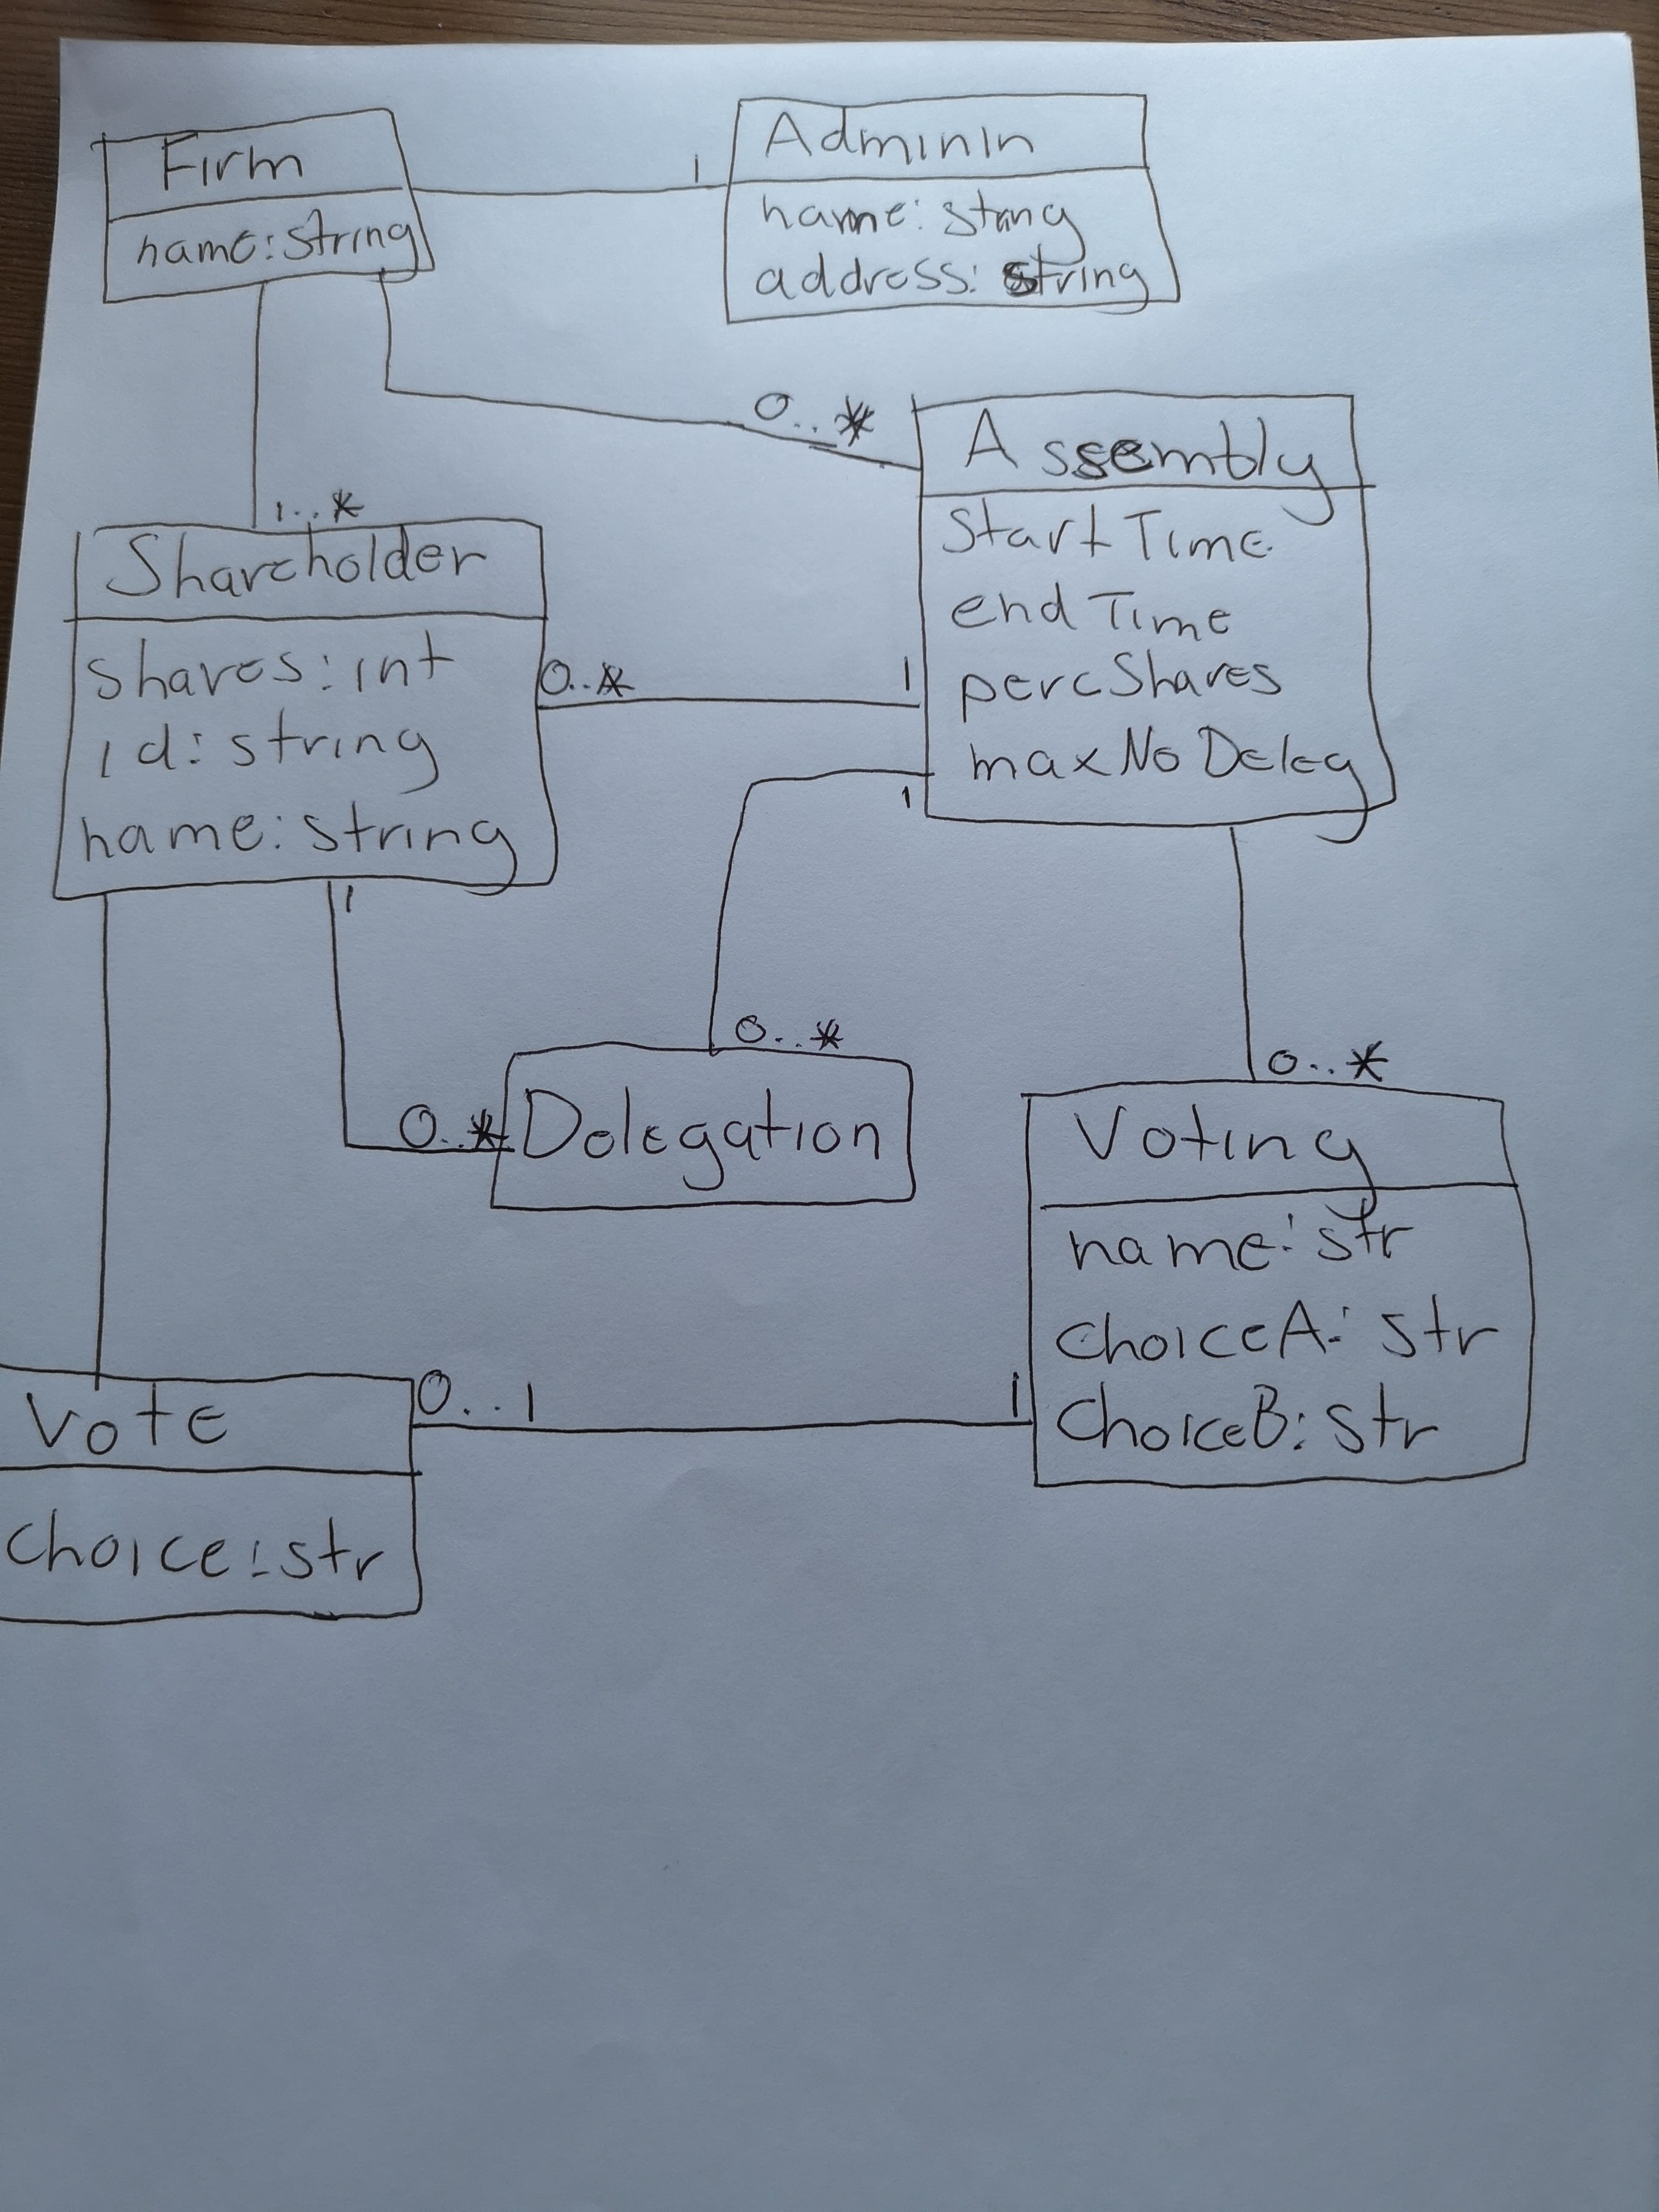 Firm
name: string
1
Adminin
name: string
address: string
0..*
Assembly
StartTime
endTime
percShares
maxNoDeleg
1..*
Shareholder
shares: int
id: string
name: string
0..*
1
1
1
0..*
0..*
Delegation
0..*
Voting
name: str
choiceA: str
ChoiceB: str
Vote
choice: str
0..1
1